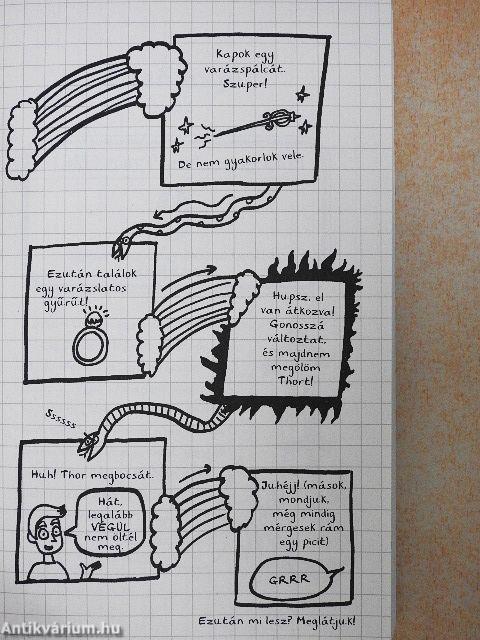 Kapok egy
varázspálcát.
Szuper!
De nem gyakorlok vele.
Ezután találok
egy varázslatos
gyűrűt!
Hupsz, el
van átkozva!
Gonosszá
változtat,
és majdnem
megölöm
Thort!
Ssssss
Huh! Thor megbocsát.
Hát,
legalább
VÉGÜL
nem öltél
meg.
Juhéjj! (mások,
mondjuk,
még mindig
mérgesek rám
egy picit)
GRRR
Ezután mi lesz? Meglátjuk!
Antikvárium.hu